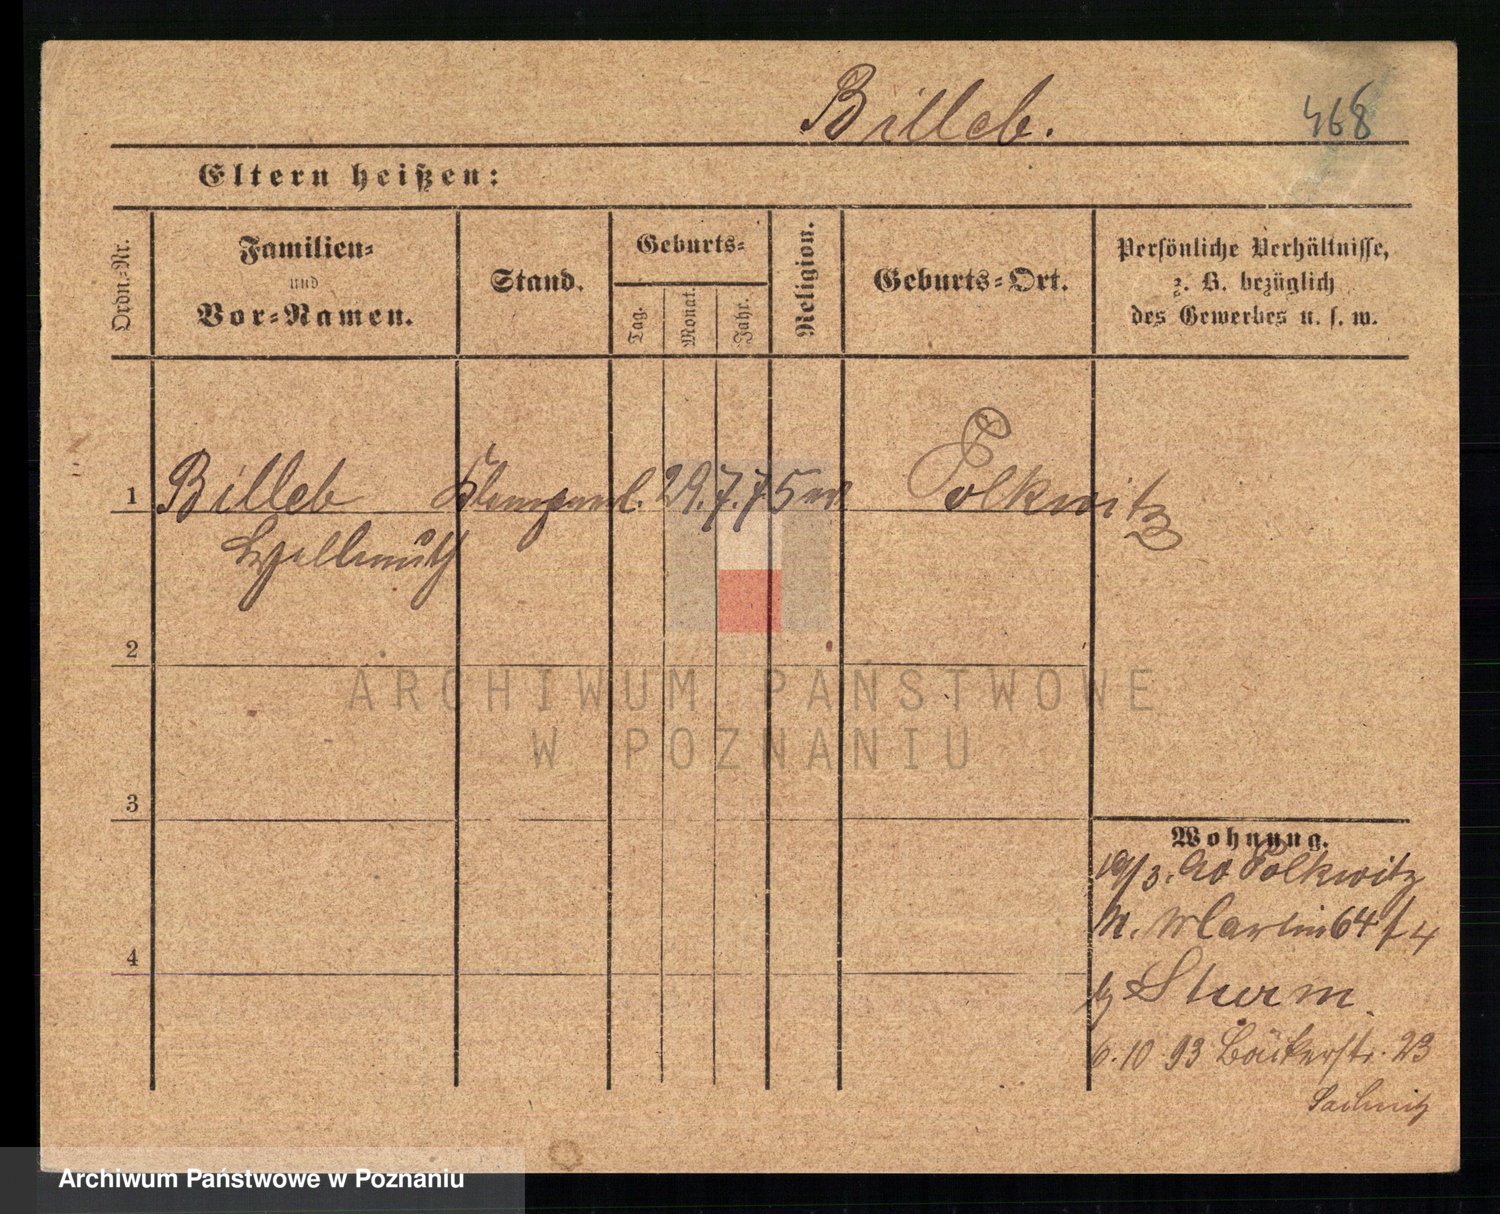 Billeb.
468
Eltern heißen:
Ordn.-Nr.
Familien-
und
Vor-Namen.
Stand.
Geburts-
Tag.
Monat.
Jahr.
Religion.
Geburts-Ort.
Persönliche Verhältnisse,
z. B. bezüglich
des Gewerbes u. s. w.
1 Billeb 29.7.75 Polkwitz
Hellmuth
2
ARCHIWUM PAŃSTWOWE
W POZNANIU
3
Wohnung.
19/3. Polkwitz
Martin 64
Sturm
6.10 93 Bäckerstr. 23
4
Archiwum Państwowe w Poznaniu